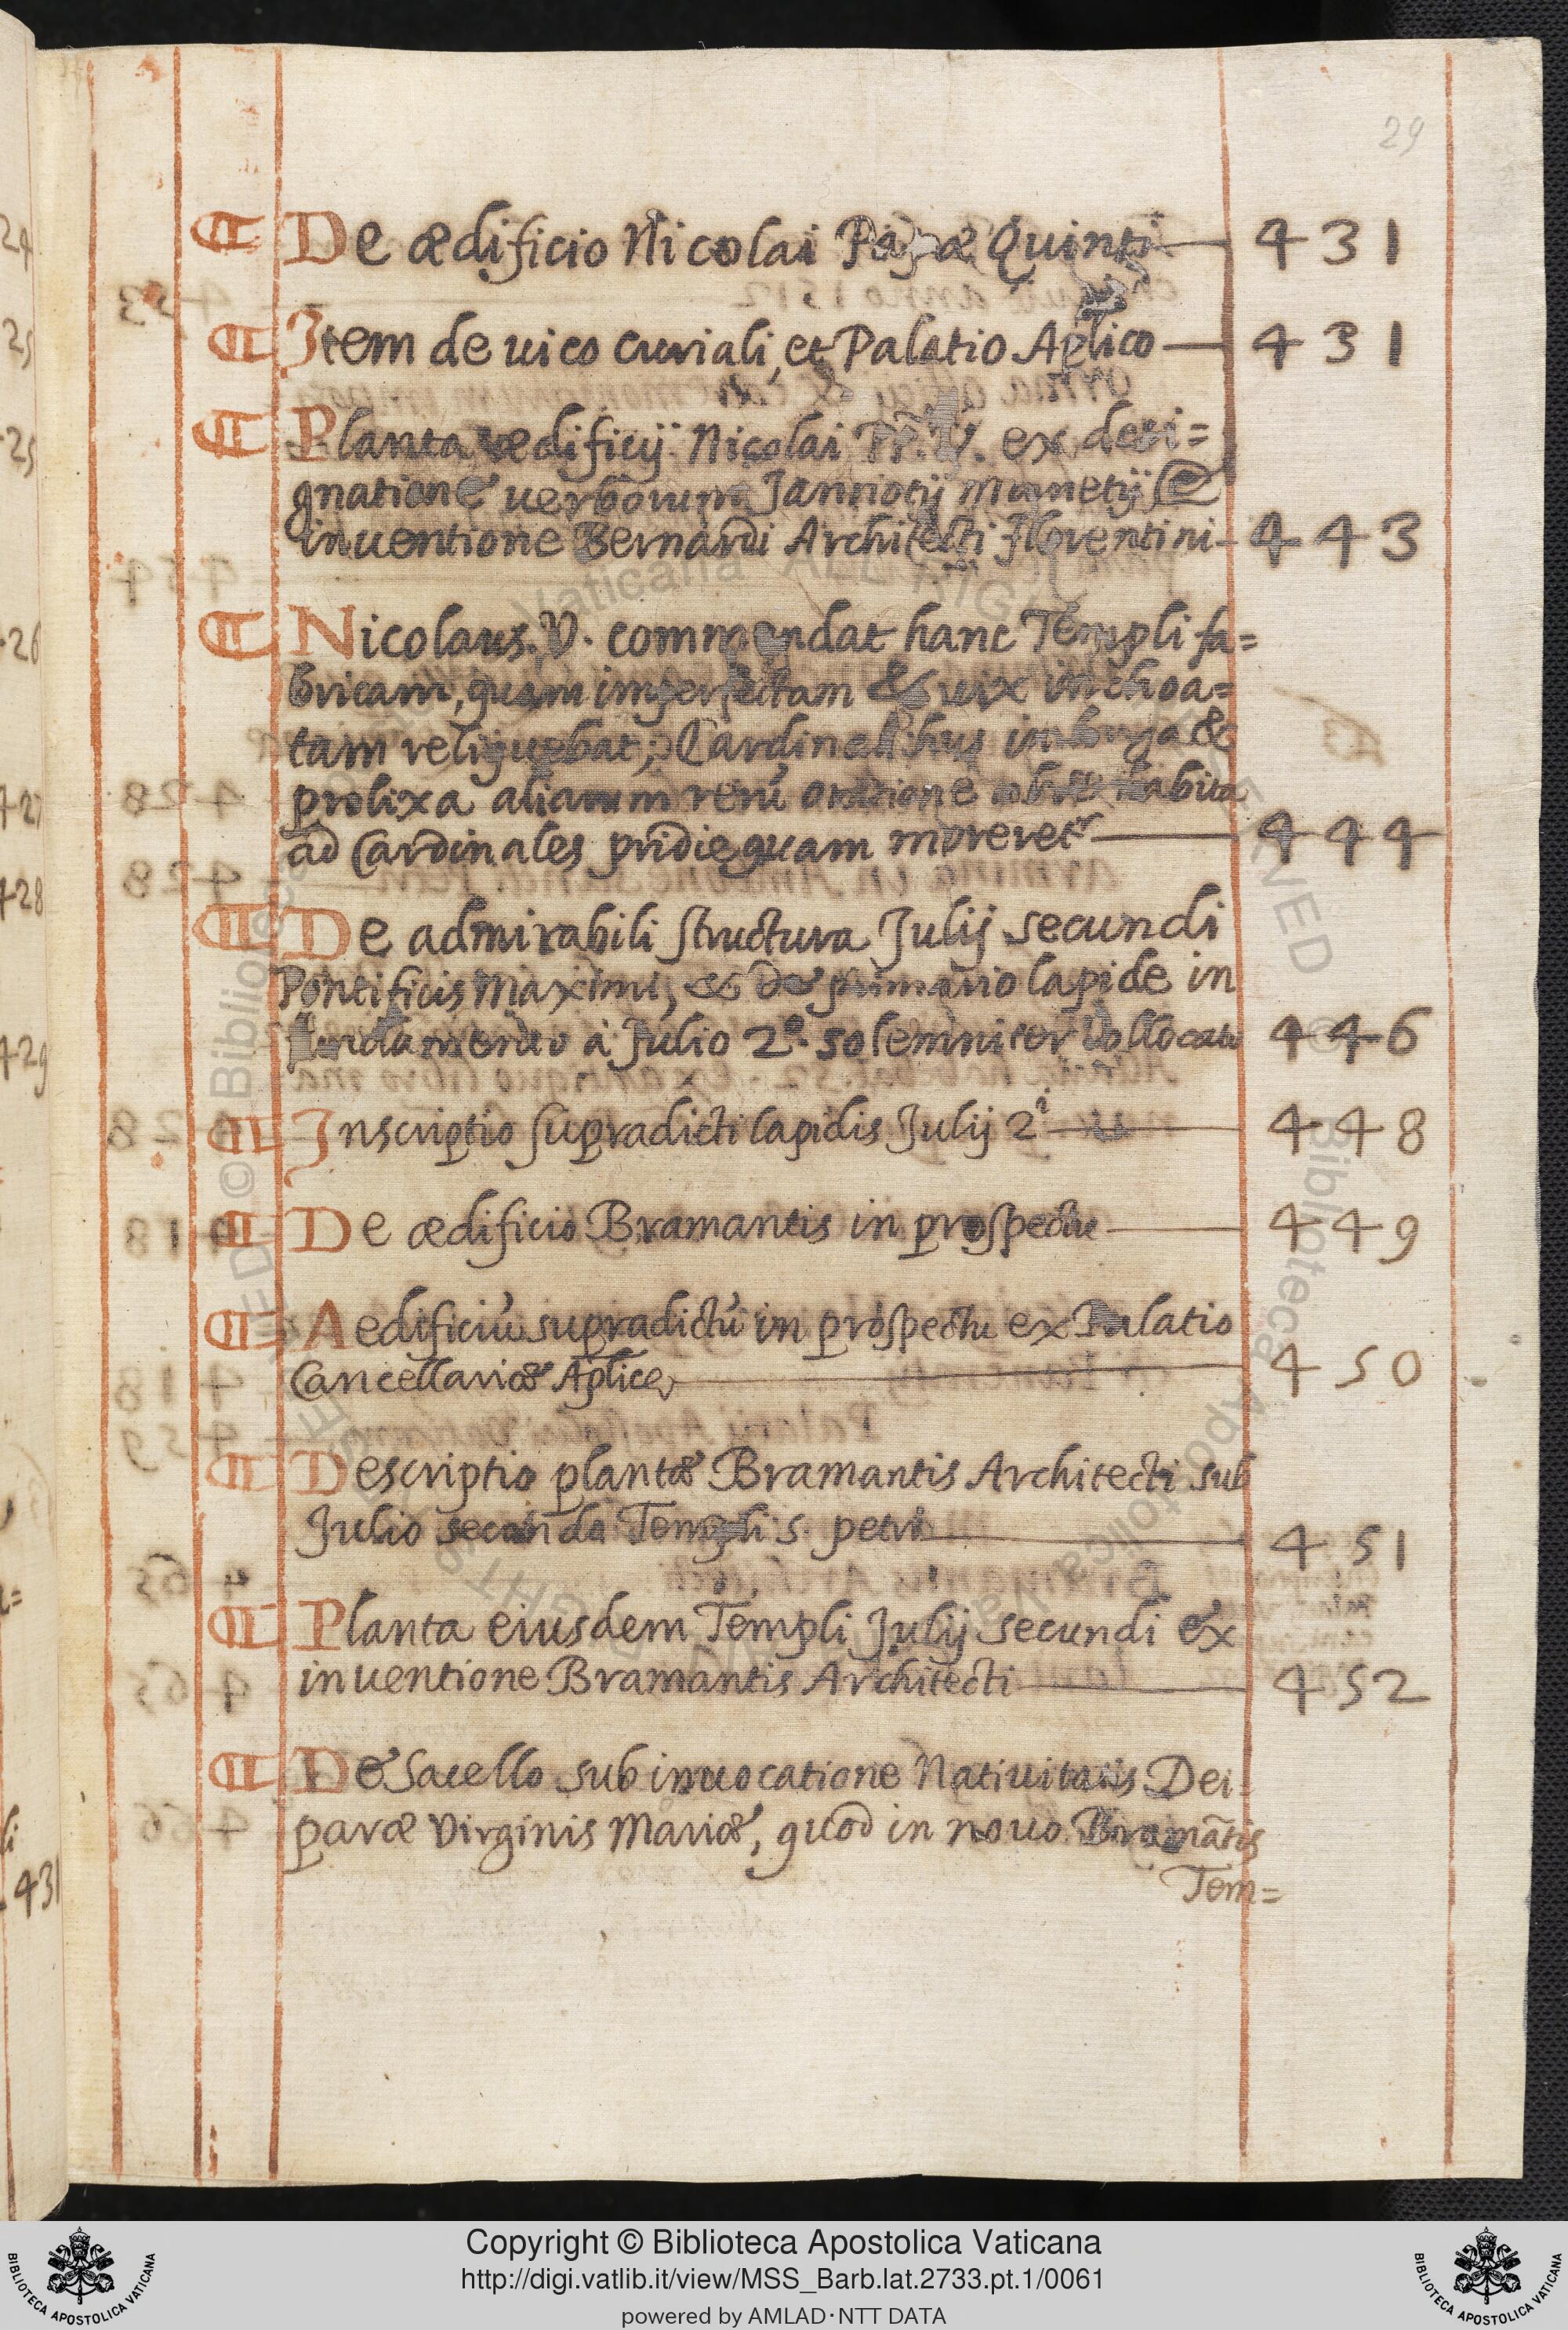 29
De ædificio Nicolai Papæ Quinti 431
Item de uico curiali, et Palatio Aplico 431
Planta ædificij Nicolai PP. V. ex desi=
gnatione uerborum Jannotij Manetij &
inuentione Bernardi Architecti florentini 443
Nicolaus. V. commendat hanc Templi fa=
bricam, quam imperfectam & uix inchoa=
tam relinquebat; Cardinalibus in longa &
prolixa aliarum rerū oratione habita
ad Cardinales pridie quam moreret^r 444
De admirabili structura Julij secundi
Pontificis Maximi, & de primario lapide in
fundamento à Julio 2º solemniter collocato 446
Inscriptio supradicti lapidis Julij 2^i 448
De ædificio Bramantis in prospectu 449
Aedificiū supradictū in prospectu ex Palatio
Cancellariæ Aplicę 450
Descriptio plantæ Bramantis Architecti sub
Julio secundo Templi S. petri 451
Planta eiusdem Templi Julij secundi ex
inuentione Bramantis Architecti 452
De Sacello sub inuocatione Natiuitatis Dei=
paræ Virginis Mariæ, quod in nouo Bramātis
Tem=
Copyright © Biblioteca Apostolica Vaticana
http://digi.vatlib.it/view/MSS_Barb.lat.2733.pt.1/0061
powered by AMLAD·NTT DATA
BIBLIOTECA APOSTOLICA VATICANA
BIBLIOTECA APOSTOLICA VATICANA